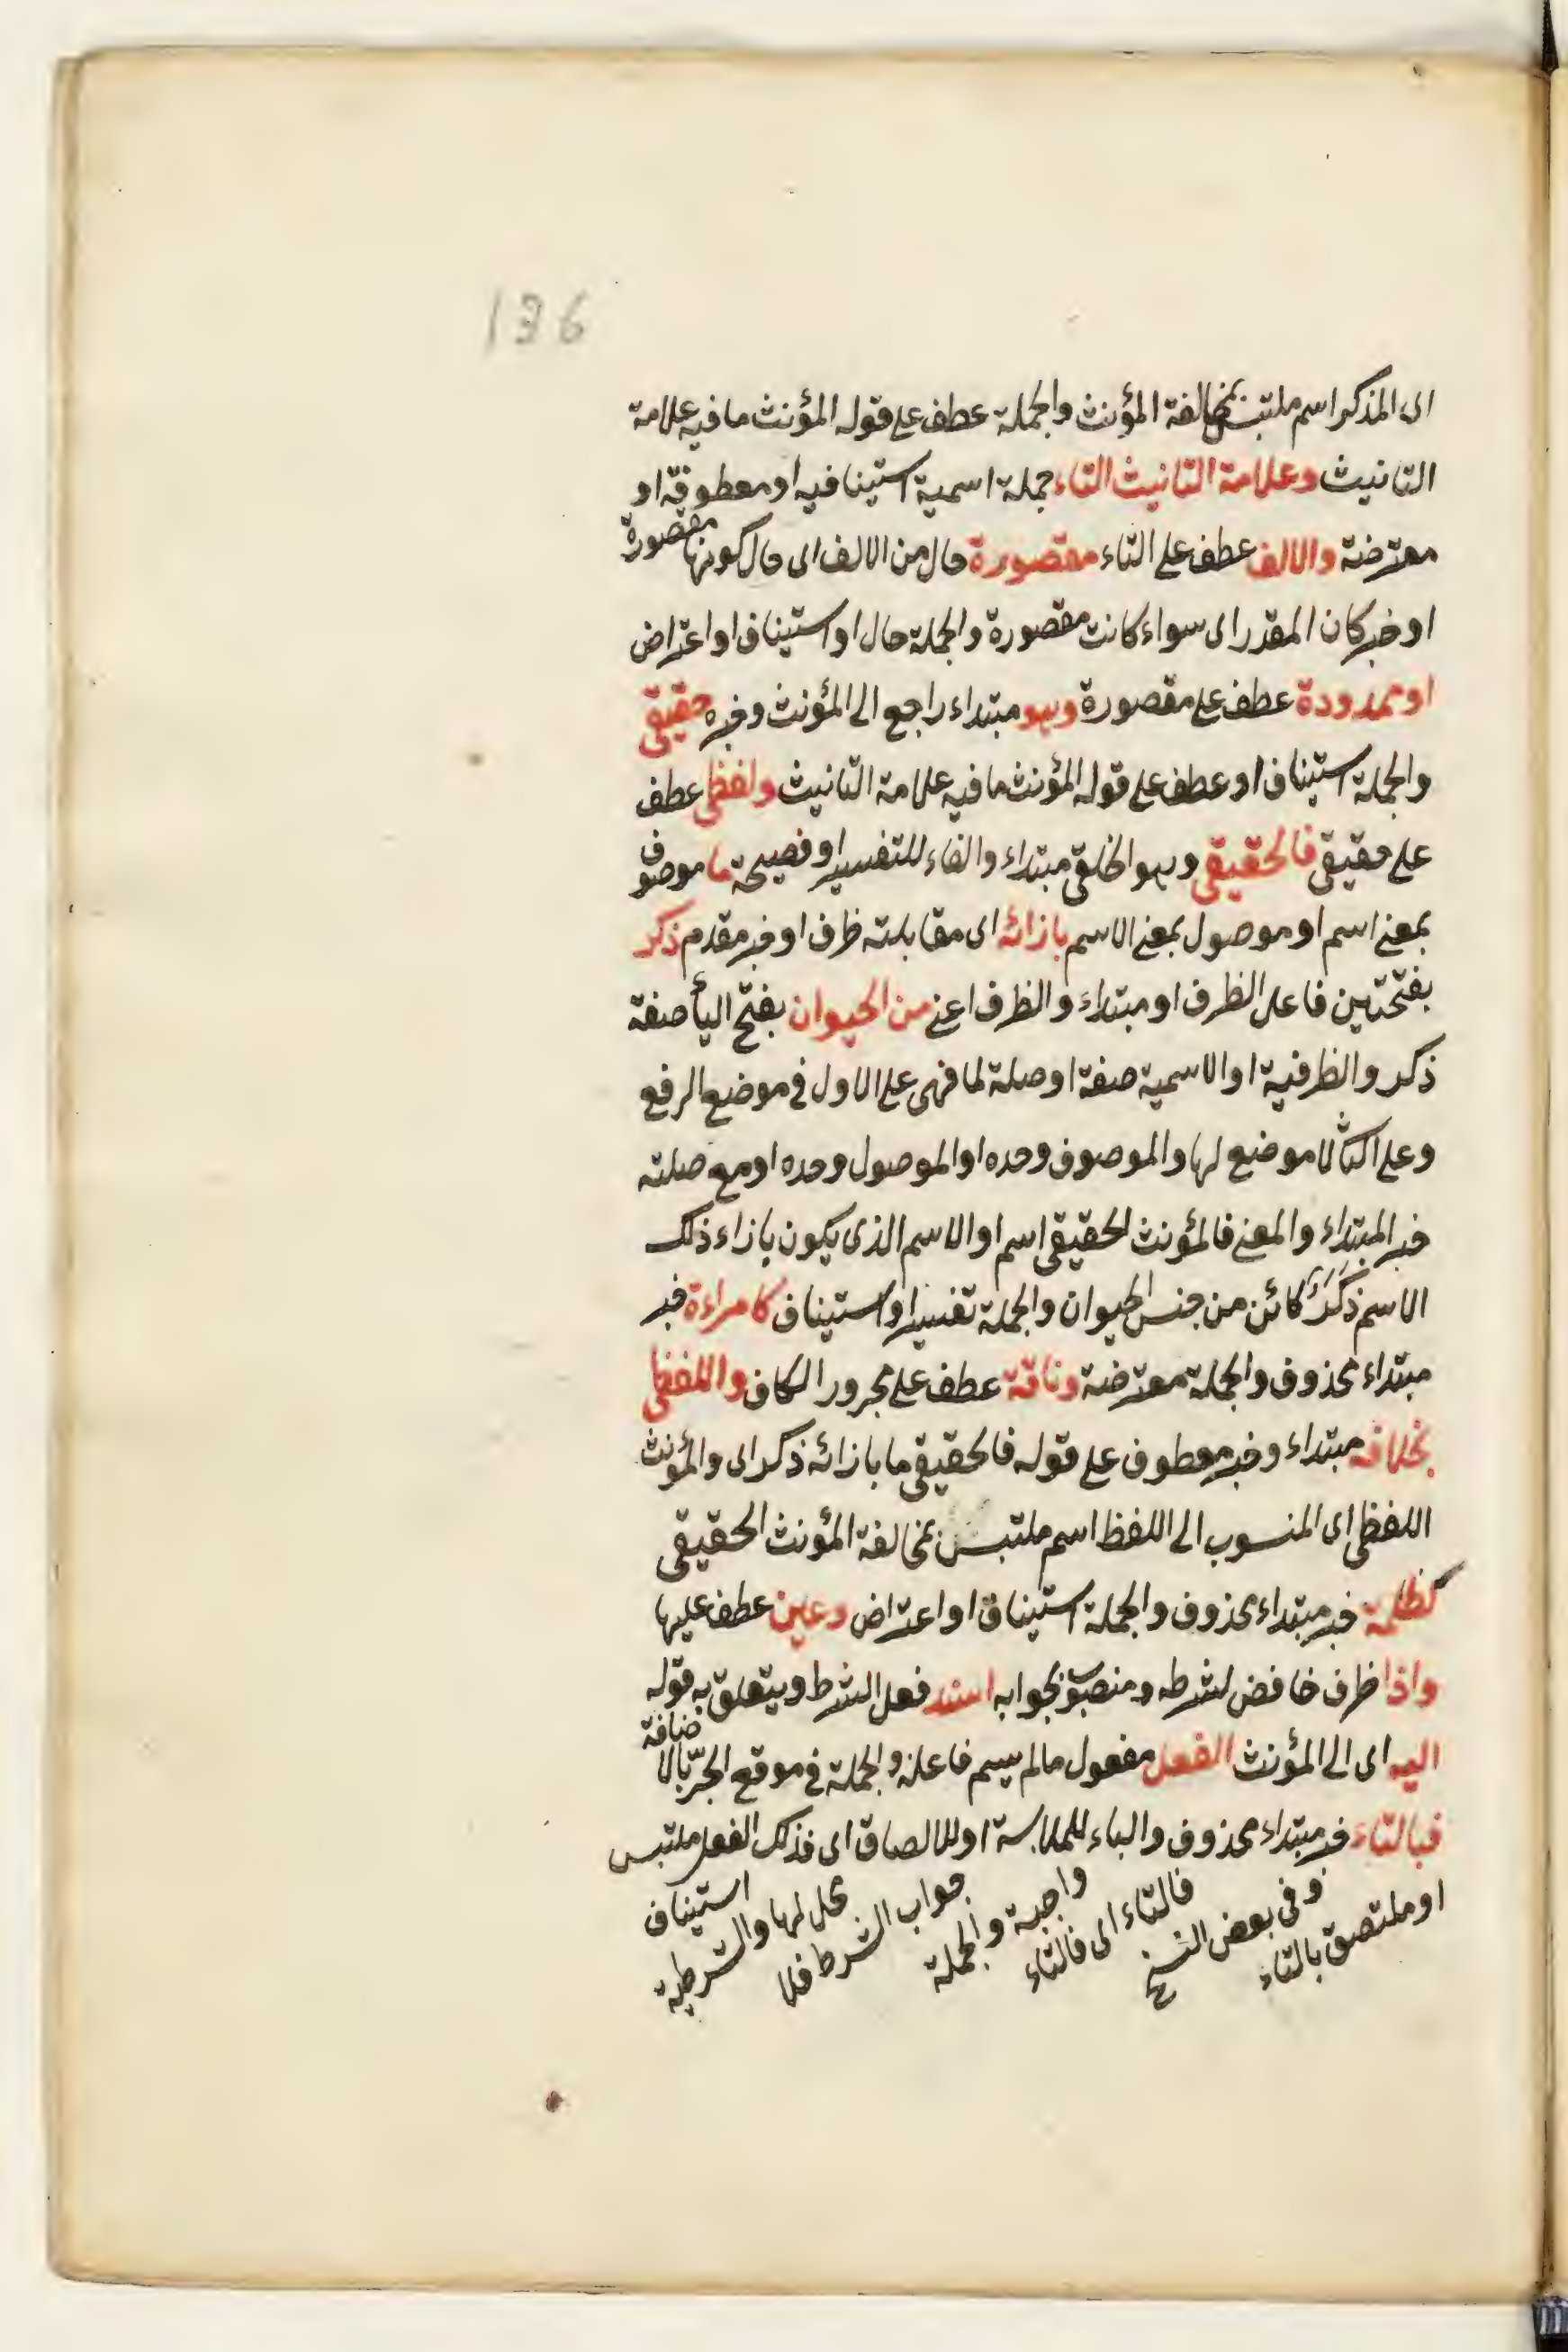 136
اى المذكر اسم ملتبس بمخالفة المؤنث والجملة عطف على قوله المؤنث ما فيه علامة
التانيث وعلامة التانيث التاء جملة اسمية استينافيه او معطوفة او
معترضة والالف عطف على التاء مقصورة حال من الالف اى حال كونها مقصورة
او خبر كان المقدر اى سواء كانت مقصورة والجملة حال او استيناف او اعتراض
او ممدودة عطف على مقصورة وهو مبتداء راجع الى المؤنث وخبره حقيقى
والجملة استيناف او عطف على قوله المؤنث ما فيه علامة التانيث ولفظى عطف
على حقيقى فالحقيقى وهو الخلقى مبتداء والفاء للتفسير او فصيحة ما موصوف
بمعنى اسم او موصول بمعنى الاسم بازائه اى مقابلته ظرف او خبر مقدم ذكر
بفتحتين فاعل الظرف او مبتداء والظرف اعنى من الحيوان بفتح اليأ صفة
ذكر والظرفية او الاسمية صفة او صلة لما فهى على الاول فى موضع الرفع
وعلى الثانى لا موضع لها والموصوف وحده او الموصول وحده او مع صلته
خبر المبتداء والمعنى فالمؤنث الحقيقى اسم او الاسم الذى يكون بازاء ذلك
الاسم ذَكَرٌ كائن من جنس الحيوان والجملة تفسير او استيناف كامراءة خبر
مبتداء محذوف والجملة معترضة وناقة عطف على مجرور الكاف واللفظى
بخلافه مبتداء وخبر معطوف على قوله فالحقيقى ما بازائه ذكر اى والمؤنث
اللفظى اى المنسوب الى اللفظ اسم ملتبس بمخالفة المؤنث الحقيقى
كظلمة خبر مبتداء محذوف والجملة استيناف او اعتراض وعين عطف عليها
واذا ظرف خافض لشرطه ومنصوب بجوابه اسند فعل الشرط ويتعلق به قوله
اليه اى الى المؤنث الفعل مفعول ما لم يسم فاعله والجملة فى موقع الجرّ بالاضافة
فبالتاء خبر مبتداء محذوف والباء للملابسة او للالصاق اى فذلك الفعل ملتبس
او ملتصق بالتاء وفى بعض النسخ فالتاء اى فالتاء واجبة والجملة جواب الشرط فلا محل لها والشرطية استيناف